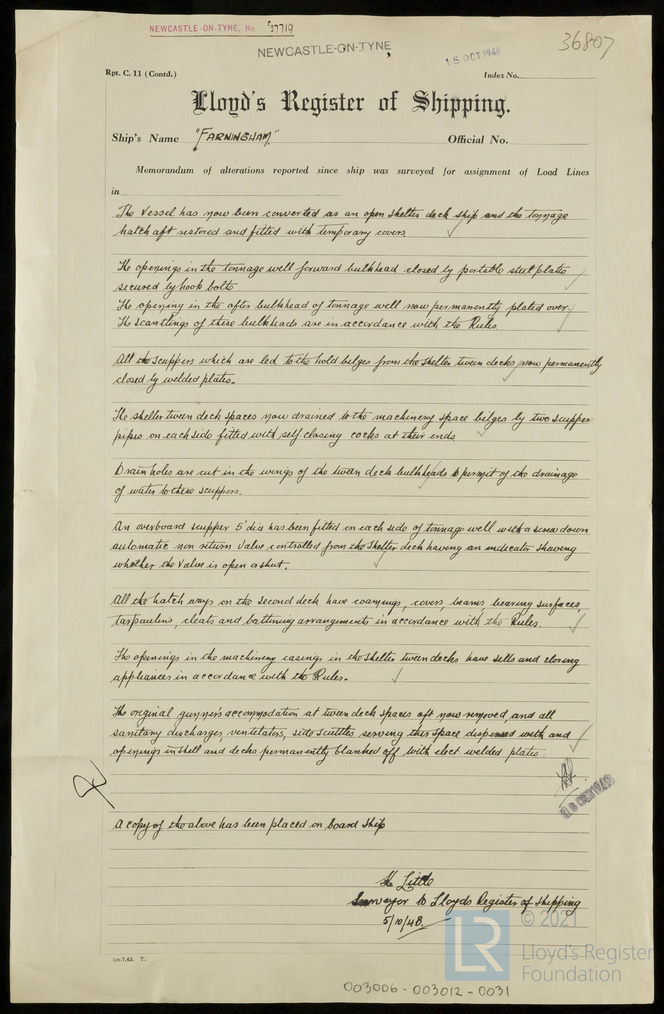 NEWCASTLE-ON-TYNE, No. 97719
NEWCASTLE-ON-TYNE,
15 OCT 1948
36807
Rpt. C. 11 (Contd.)
Index No.
Lloyd's Register of Shipping.
Ship's Name "FARNINGHAM."
Official No.
Memorandum of alterations reported since ship was surveyed for assignment of Load Lines
in
The Vessel has now been converted as an open shelter deck ship and the tonnage
hatch aft restored and fitted with temporary covers.
The openings in the tonnage well forward bulkhead closed by portable steel plates
secured by hook bolts.
The opening in the after bulkhead of tonnage well now permanently plated over.
The scantlings of these bulkheads are in accordance with the Rules.
All the scuppers which are led to the hold bilges from the shelter tween decks now permanently
closed by welded plates.
The shelter tween deck spaces now drained to the machinery space bilges by two scupper
pipes on each side fitted with self closing cocks at their ends
Drain holes are cut in the wings of the tween deck bulkheads to permit of the drainage
of water to these scuppers.
An overboard scupper 5" dia has been fitted on each side of tonnage well with a screw down
automatic non return valve controlled from the shelter deck having an indicator showing
whether the valve is open or shut.
All the hatch ways on the second deck have coamings, covers, beams, bearing surfaces,
tarpaulins, cleats and battening arrangements in accordance with the Rules.
The openings in the machinery casings in the shelter tween decks have sills and closing
appliances in accordance with the Rules.
The original gunners accommodation at tween deck spaces aft now removed, and all
sanitary discharges, ventilators, side scuttles serving this space dispensed with and
openings in shell and decks permanently blanked off with elect welded plates.
A copy of the above has been placed on board ship
Little
Surveyor to Lloyds Register of Shipping
5/10/48.
1m.7.42. T.
LR
© 2021
Lloyd's Register
Foundation
003006-003012-0031